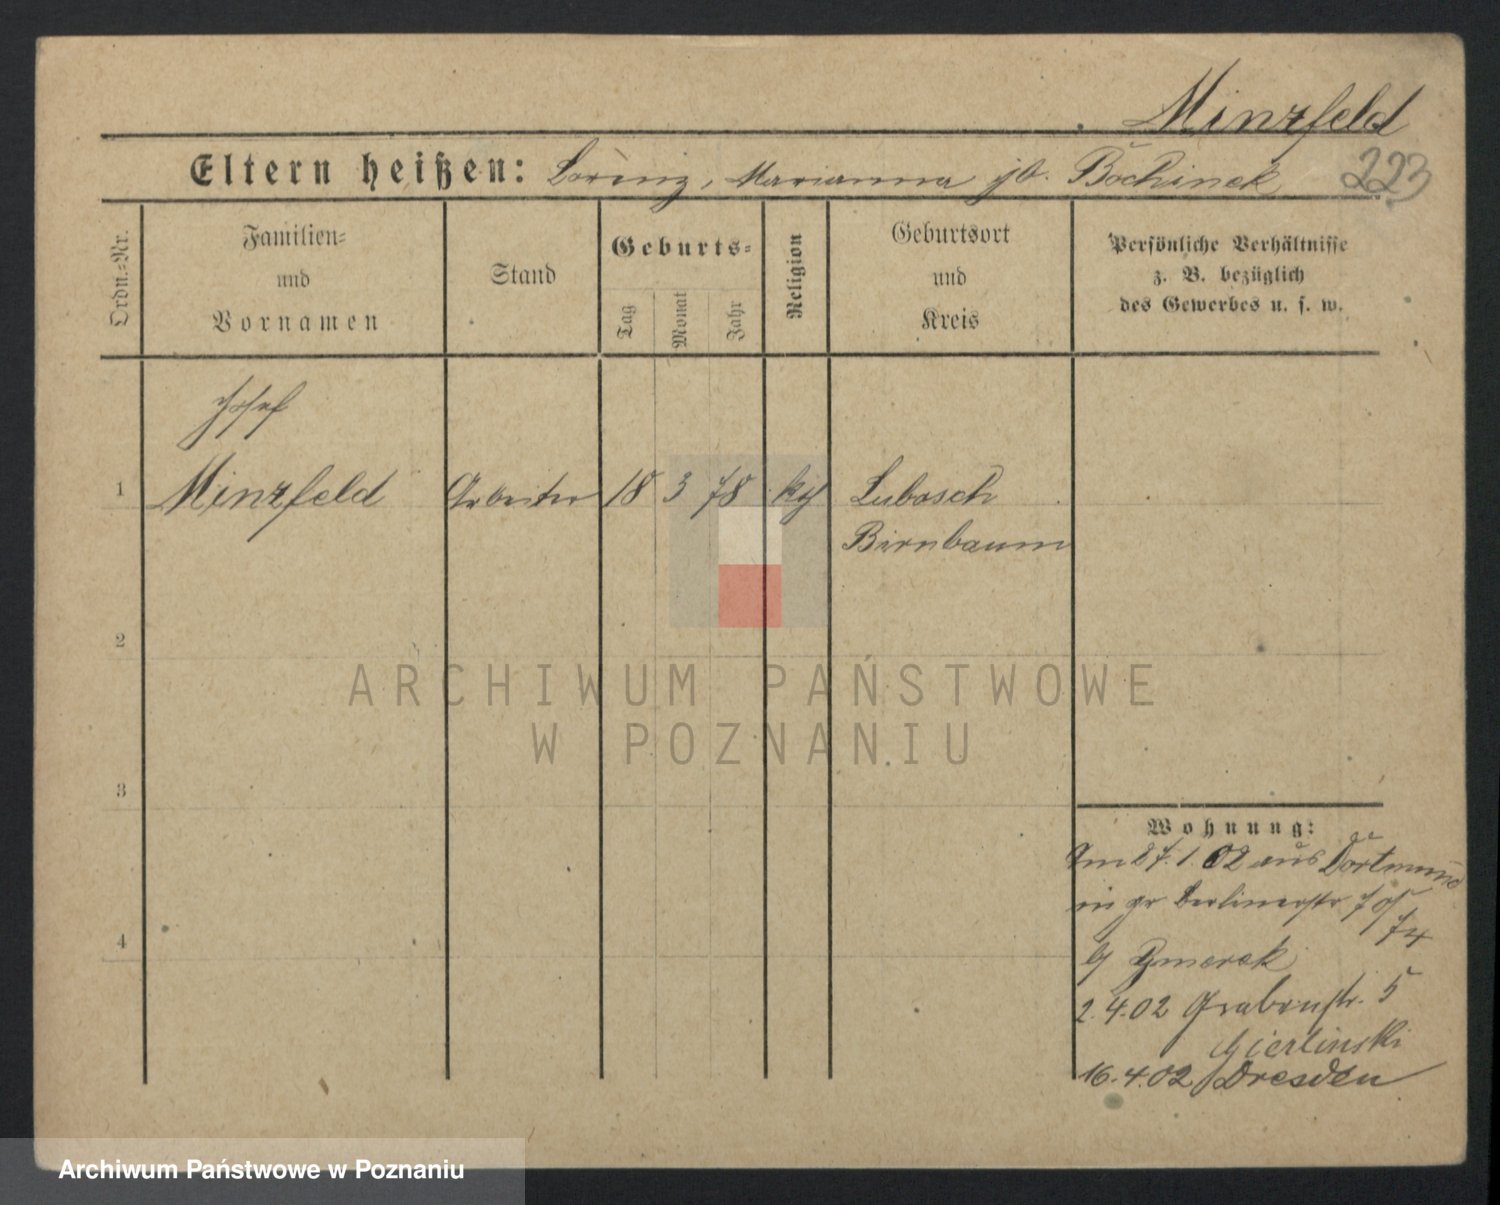 Minzfeld
223
Eltern heißen: Lorenz, Marianna gb. Bochinek
Ordn.-Nr.
Familien-
und
Vornamen
Stand
Geburts-
Tag
Monat
Jahr
Religion
Geburtsort
und
Kreis
Persönliche Verhältnisse
z. B. bezüglich
des Gewerbes u. s. w.
Josef
1 Minzfeld Arbeiter 18 3 78 Lubosch
Birnbaum
2
3
4
Wohnung:
Am 27.1.02 aus Dortmund
in gr Berlinerstr 70/
74
2.4.02 Grabenstr. 5
Gierlinski
16.4.02 Dresden
ARCHIWUM PAŃSTWOWE
W POZNANIU
Archiwum Państwowe w Poznaniu